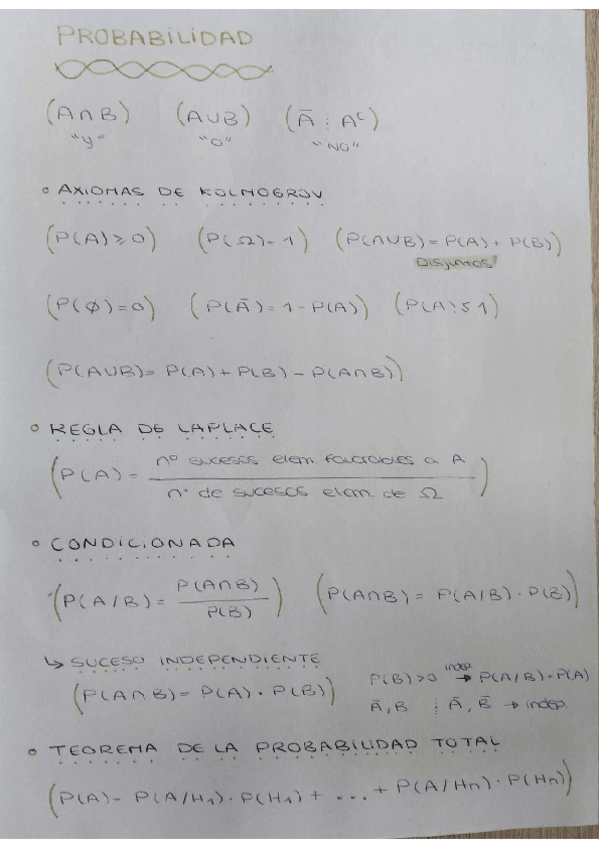 PROBABILIDAD
(A∩B) (A∪B) (Ā ; Aᶜ)
"y" "o" "NO"
• AXIOMAS DE KOLMOGROV
(P(A)≥0) (P(Ω)=1) (P(A∪B)=P(A)+P(B))
Disjuntos
(P(∅)=0) (P(Ā)=1-P(A)) (P(A)≤1)
(P(A∪B)=P(A)+P(B)-P(A∩B))
• REGLA DE LAPLACE
(P(A)= nº sucesos elem. favorables a A / nº de sucesos elem. de Ω)
• CONDICIONADA
(P(A/B)= P(A∩B) / P(B)) (P(A∩B)=P(A/B)·P(B))
↳ SUCESO INDEPENDIENTE
(P(A∩B)=P(A)·P(B)) P(B)>0 indep → P(A/B)=P(A)
Ā,B ; Ā,B̄ → indep.
• TEOREMA DE LA PROBABILIDAD TOTAL
(P(A)=P(A/H1)·P(H1)+...+P(A/Hn)·P(Hn))